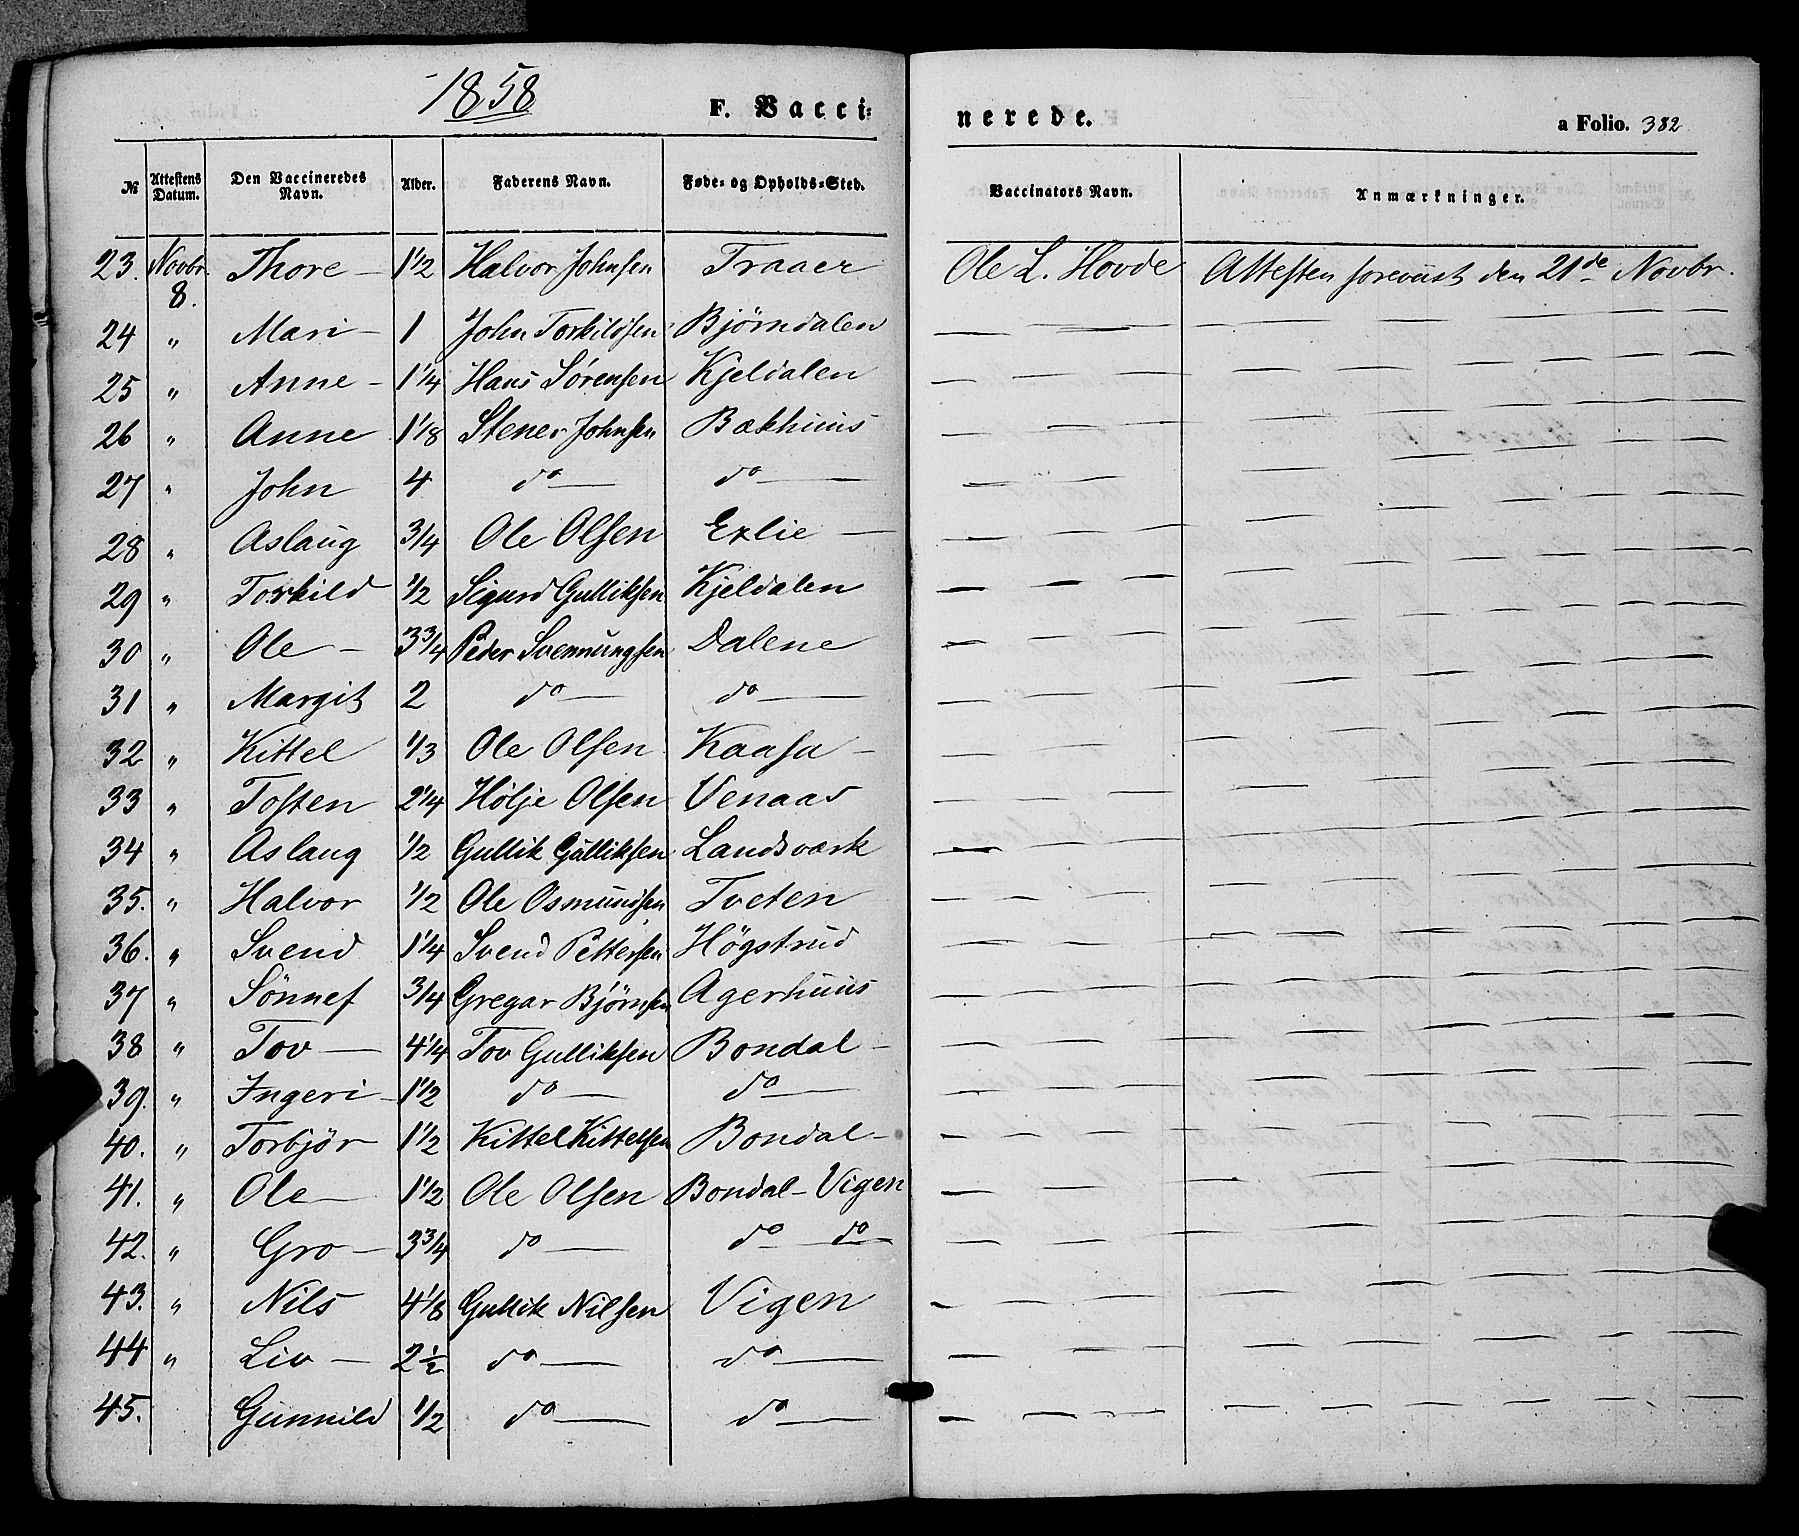 1858
F. Vacci=
nerede.
a Folio. 382
№ Attestens Datum. Den Vaccineredes Navn. Alder. Faderens Navn. Føde- og Opholds-Sted. Vaccinators Navn. Anmærkninger.
23. Novbr. 8. Thore - 1 1/2 Halvor Johnsen Traaer Ole L. Hovde Attesten foreviist den 21de Novbr.
24 " Mari - 1 John Torkildsen Bjørndalen
25 " Anne - 1 1/4 Hans Sørensen Kjeldalen
26 " Anne 1 1/8 Stener Johnsen Bækhuus
27 " John 4 do do
28 " Aslaug 3/4 Ole Olsen Exlie
29 " Torkild 1/2 Sigurd Gulliksen Kjeldalen
30 " Ole - 3 3/4 Peder Svennungsen Dalene
31 " Margit 2 do do
32 " Kittel 1/3 Ole Olsen Kaasa
33 " Tosten 2 1/4 Hølje Olsen Venaas
34 " Aslaug 1/2 Gullik Gulliksen Landsværk
35. " Halvor 1/2 Ole Osmundsen Tveten
36. " Svend 1 1/4 Svend Pettersen Høgstrud
37 " Sønnef 3/4 Gregar Bjørnsen Agerhuus
38 " Tov - 4 1/4 Tov Gulliksen Bondal -
39. " Ingeri - 1 1/2 do do
40. " Torbjør 1 1/2 Kittel Kittelsen Bondal -
41. " Ole - 1 1/2 Ole Olsen Bondal - Vigen
42. " Gro - 3 3/4 do do do
43. " Nils 4 1/8 Gullik Nilsen Vigen
44 " Liv - 2 1/2 do do
45. Gunnild 1/2 do do